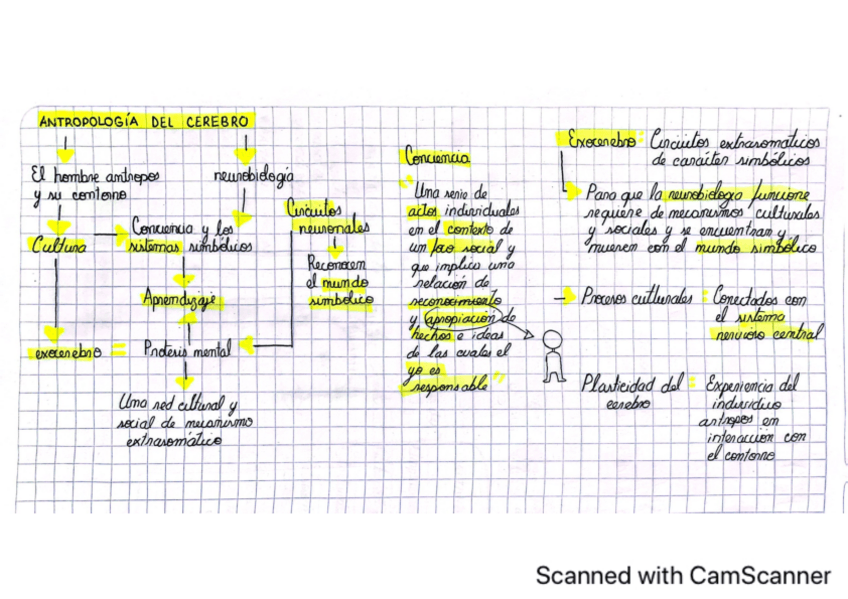 ANTROPOLOGÍA DEL CEREBRO
El hombre antropos
y su contorno
neurobiología
Cultura
Conciencia y los
sistemas simbólicos
Aprendizaje
exocerebro = Prótesis mental
Una red cultural y
social de mecanismo
extrasomático
Circuitos
neuronales
Reconocen
el mundo
simbólico
Conciencia
"Una serie de
actos individuales
en el contexto de
un foco social y
que implica una
relación de
reconocimiento
y apropiación de
hechos e ideas
de las cuales el
yo es
responsable"
Exocerebro: Circuitos extrasomáticos
de carácter simbólicos
Para que la neurobiología funcione
requiere de mecanismos culturales
y sociales y se encuentran y
mueren con el mundo simbólico
Procesos culturales: Conectados con
el sistema
nervioso central
Plasticidad del : Experiencia del
cerebro
individuo
antropos en
interacción con
el contorno
Scanned with CamScanner